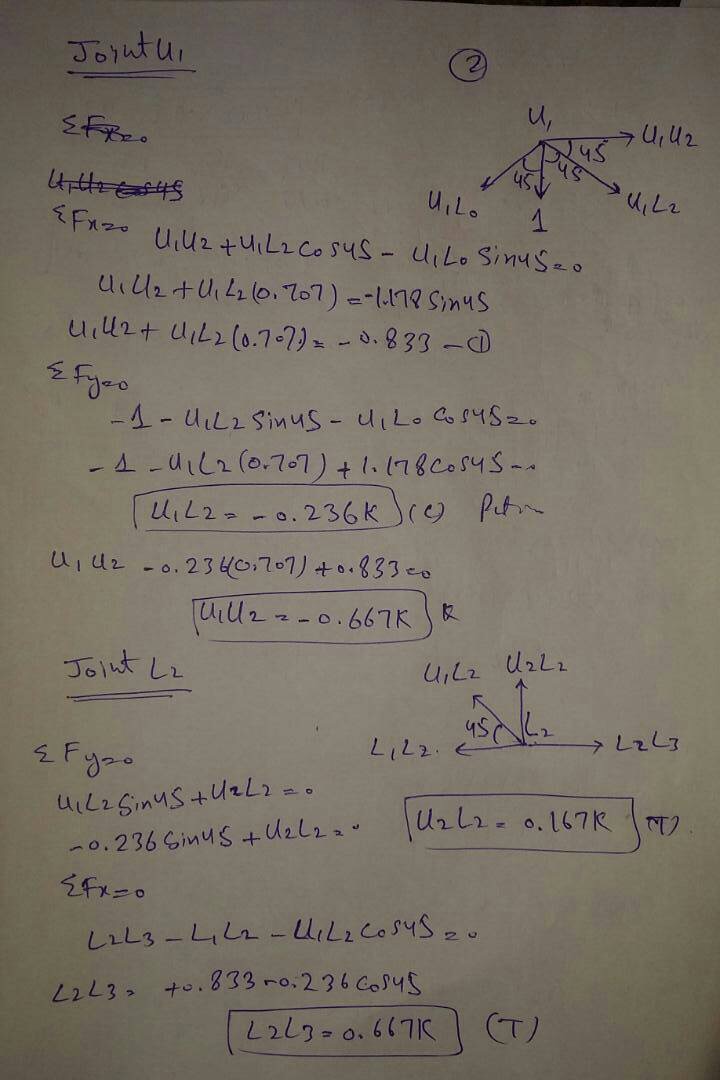 Joint U1
2
ΣFx=0
U1U2 cos45
U1
U1U2
45
45
45
U1L0
1
U1L2
ΣFx=0 U1U2 + U1L2 cos45 - U1L0 Sin45=0
U1U2 + U1L2(0.707) = -1.178 Sin45
U1U2 + U1L2(0.707) = -0.833 -①
ΣFy=0
-1 - U1L2 Sin45 - U1L0 Cos45=0
-1 - U1L2(0.707) + 1.178 Cos45 =0
U1L2 = -0.236K (C)
U1U2 -0.236(0.707) +0.833=0
U1U2 = -0.667K
Joint L2
U1L2 U2L2
45
L2
L1L2
L2L3
ΣFy=0
U1L2 Sin45 + U2L2 =0
-0.236 Sin45 + U2L2 =0
U2L2 = 0.167K (T)
ΣFx=0
L2L3 - L1L2 - U1L2 Cos45 =0
L2L3 = +0.833 -0.236 Cos45
L2L3 = 0.667K (T)